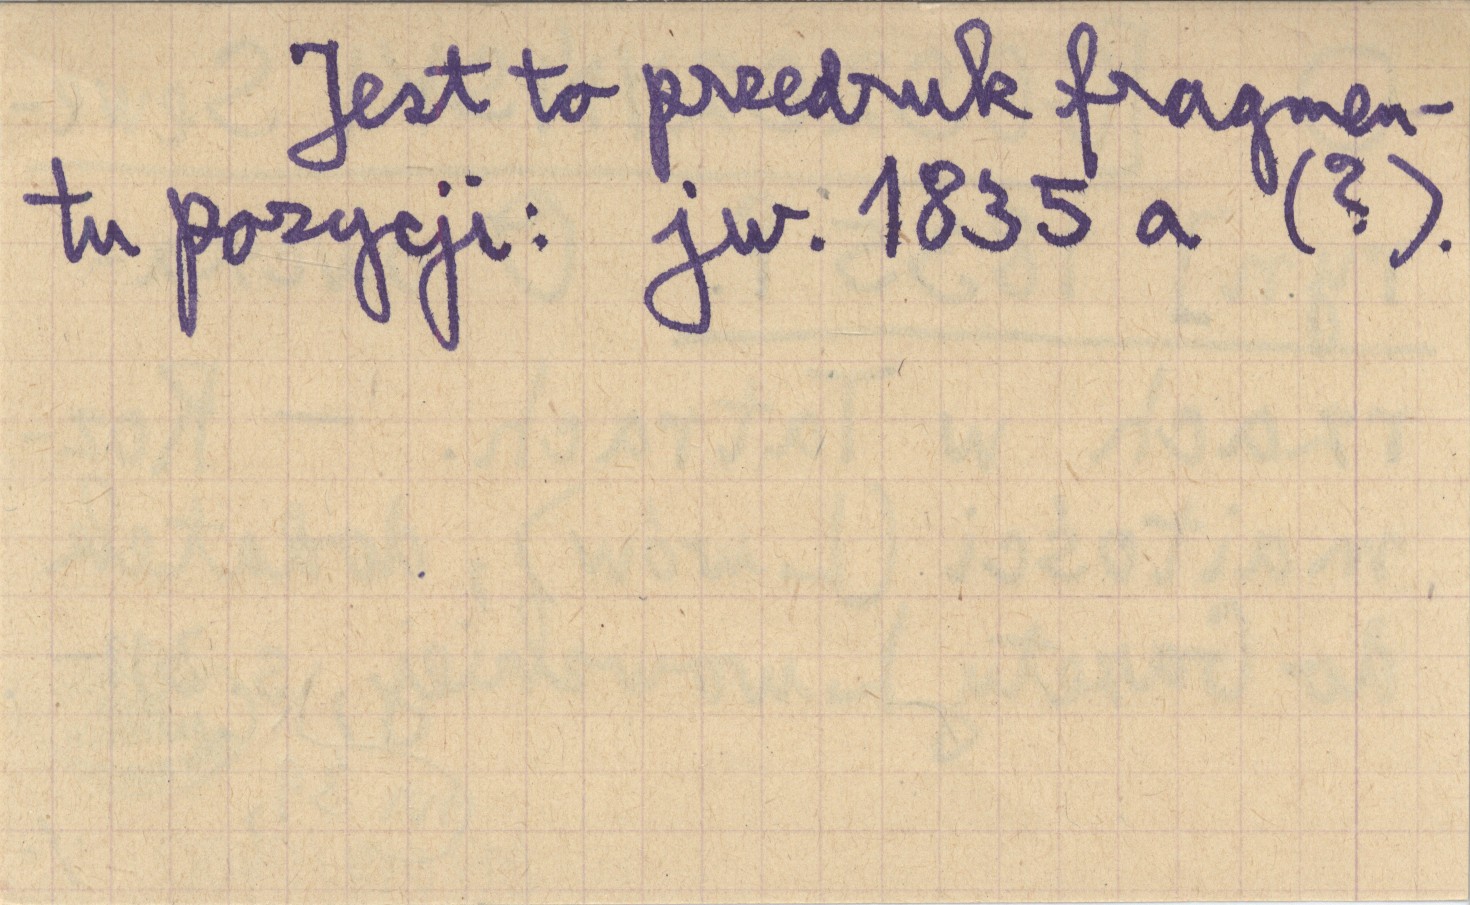 Jest to przedruk fragmen-
tu pozycji: jw. 1835 a (?).